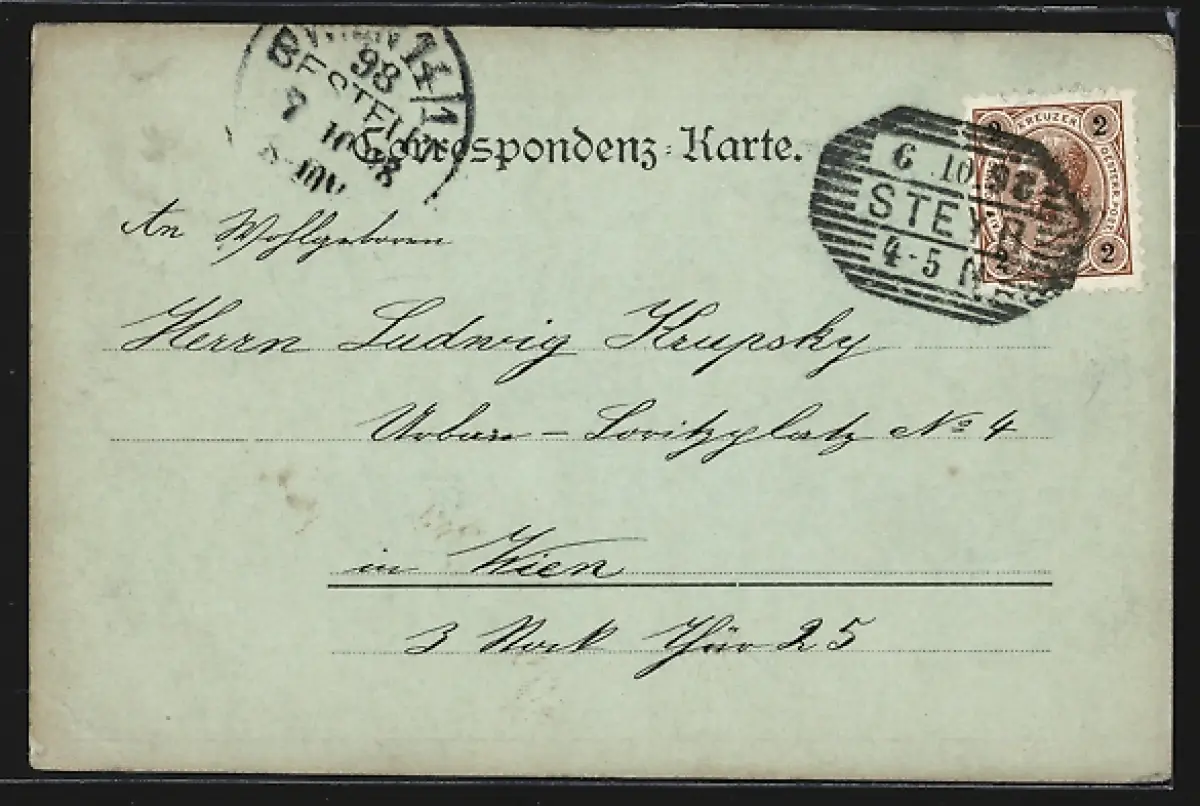 WIEN 14/1
98
BESTELLT
7 10 98
Correspondenz-Karte.
6 .10.98
STEYR
4-5 N
KREUZER
2
2
2
An Wohlgeboren
Herrn Ludwig Krupsky
Urban-Loritzplatz No 4
in Wien
3 Stock Thür 25